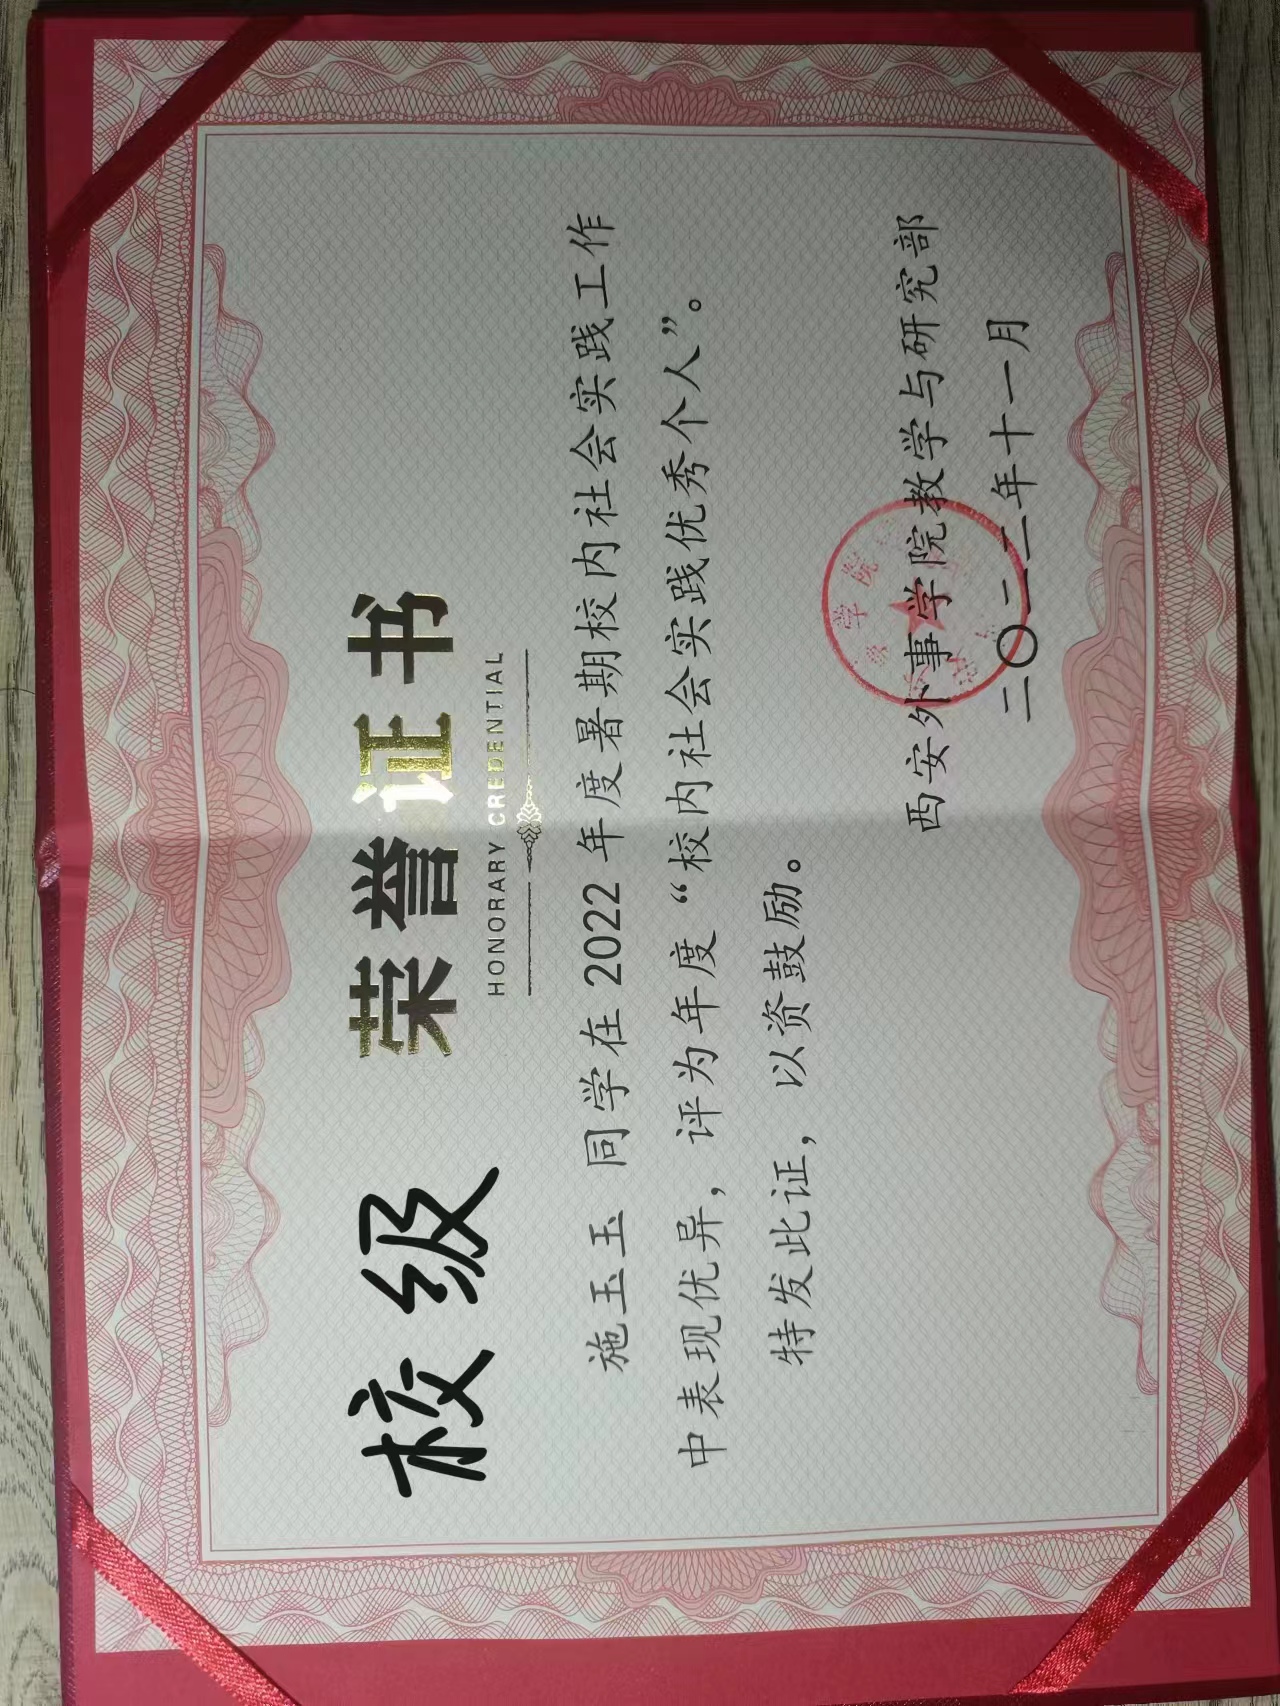 校级
荣誉证书
HONORARY CREDENTIAL
施玉玉 同学在 2022 年度暑期校内社会实践工作
中表现优异，评为年度“校内社会实践优秀个人”。
特发此证，以资鼓励。
西安外事学院教学与研究部
二〇二二年十一月
学院